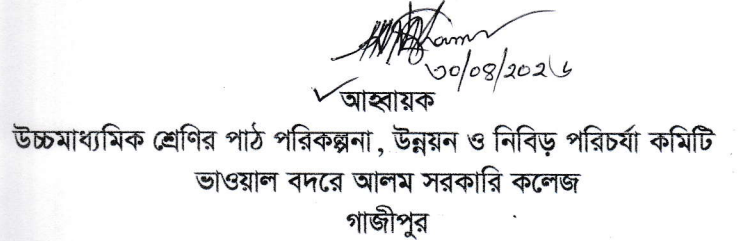 ৩০/০৪/২০২৬
আহ্বায়ক
উচ্চমাধ্যমিক শ্রেণির পাঠ পরিকল্পনা, উন্নয়ন ও নিবিড় পরিচর্যা কমিটি
ভাওয়াল বদরে আলম সরকারি কলেজ
গাজীপুর